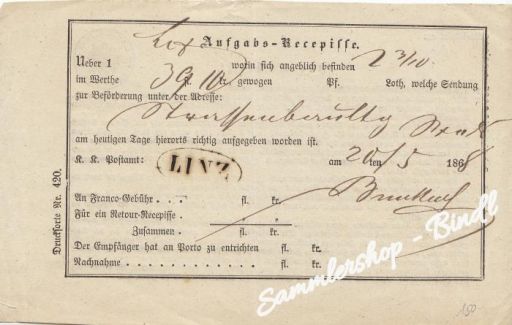 Aufgabs-Recepisse.
Ueber 1 worin sich angeblich befinden 2 3/10
im Werthe 39 fl. 10 kr. gewogen Pf. Loth, welche Sendung
zur Beförderung unter der Adresse:
am heutigen Tage hierorts richtig aufgegeben worden ist.
K. K. Postamt: LINZ am 20ten /5 1868
An Franco-Gebühr . . . fl. kr.
Für ein Retour-Recepisse .
Zusammen . fl. kr.
Der Empfänger hat an Porto zu entrichten fl. kr.
Nachnahme . . . . . . . . . . . fl. kr.
Drucksorte Nr. 420.
Sammlershop - Bindl
150